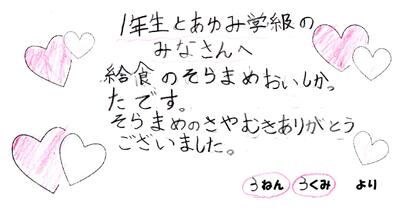 1年生とあゆみ学級の
みなさんへ
給食のそらまめおいしかっ
たです。
そらまめのさやむきありがとう
ございました。
3ねん 3くみ より